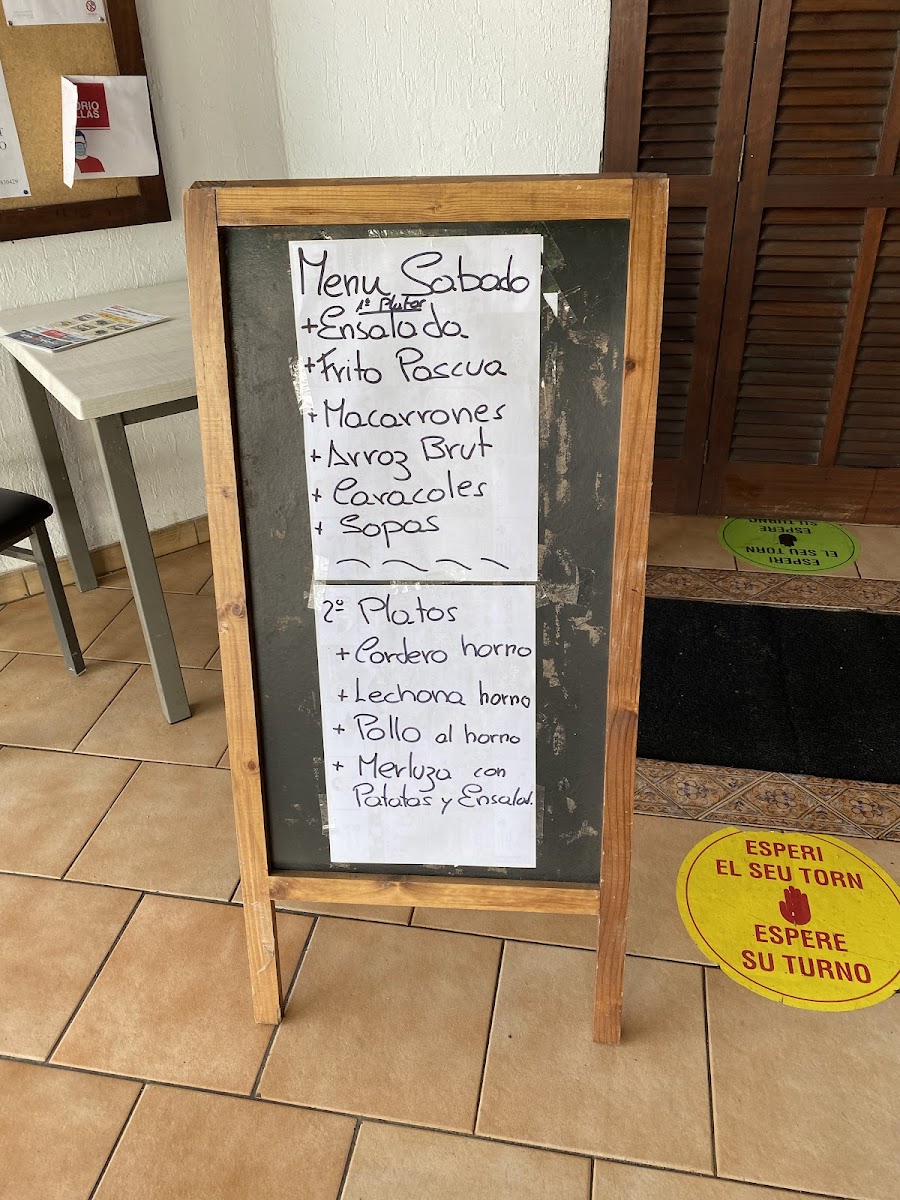 ORIO
LLAS
830429
Menu Sabado
1º Platos
+Ensalada
+Frito Pascua
+Macarrones
+Arroz Brut
+Caracoles
+Sopas
2º Platos
+Cordero horno
+Lechona horno
+Pollo al horno
+Merluza con
Patatas y Ensalad.
ESPERI
EL SEU TORN
ESPERE
SU TURNO
ESPERI
EL SEU TORN
ESPERE
SU TURNO